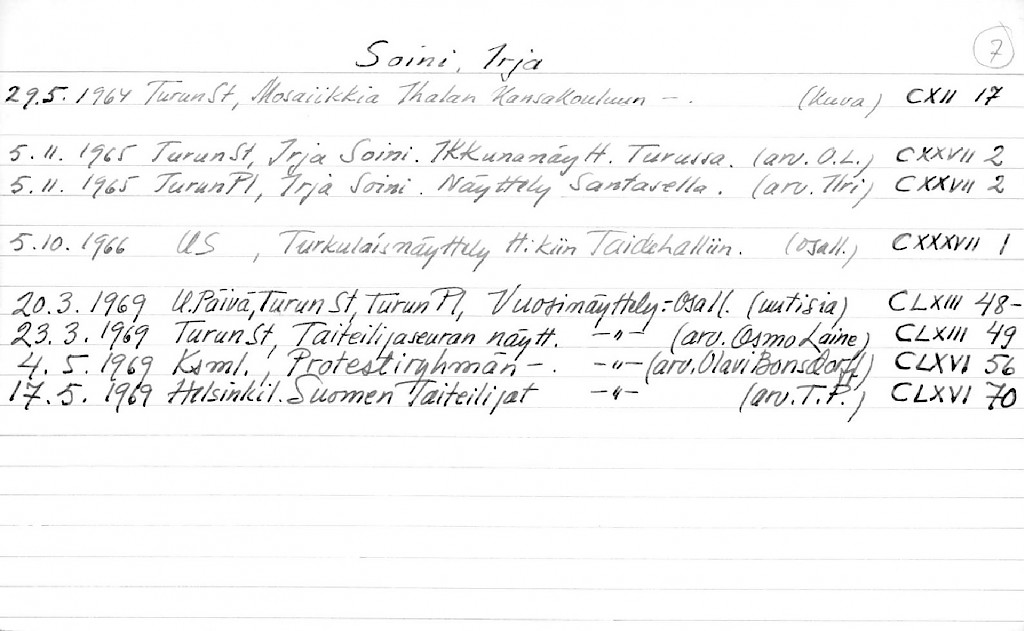 7
Soini, Irja
29.5. 1964 TurunSt, Mosaiikkia Ihalan Kansakouluun - . (kuva) CXII 17
5.11. 1965 TurunSt, Irja Soini. Ikkunanäytt. Turussa. (arv. O.L.) CXXVII 2
5.11. 1965 TurunPl, Irja Soini. Näyttely Santasella. (arv. Ilri) CXXVII 2
5.10. 1966 US , Turkulaisnäyttely H:kiin Taidehalliin. (osall.) CXXXVII 1
20.3. 1969 U.Päivä, TurunSt, TurunPl, Vuosinäyttely: Osall. (uutisia) CLXIII 48-
23.3. 1969 TurunSt, Taiteilijaseuran näytt. -"- (arv. Osmo Laine) CLXIII 49
4.5. 1969 Ksml., Protestiryhmän - . -"- (arv. Olavi Bonsdorff) CLXVI 56
17.5. 1969 Helsinkil. Suomen Taiteilijat -"- (arv. T.P.) CLXVI 70